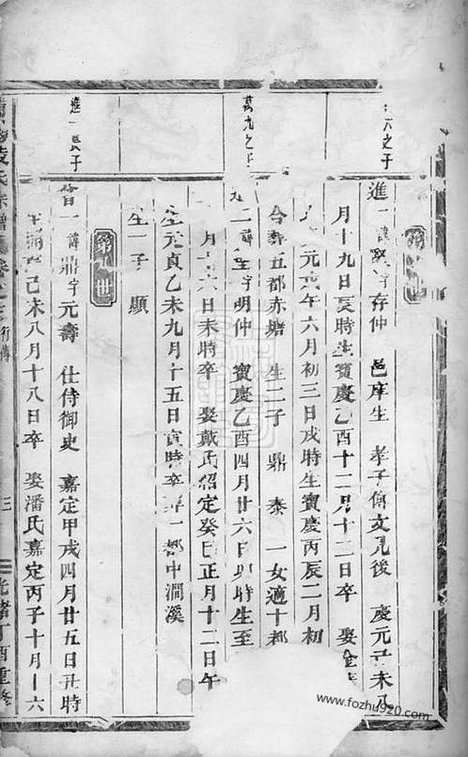 六之子
第世
進一諱字存仲 邑庠生 孝子傳文見後 慶元己未八
月十九日辰時生寶慶乙酉十二月十二日卒 娶金
元午六月初三日戌時生寶慶丙辰二月初
合葬五都赤塘 生二子 鼎 泰 一女適十都
萬九之子
二字明仲 寶慶乙酉四月廿六日卯時生至
月日未時卒 娶戴氏紹定癸巳正月十二日午
元貞乙未九月十五日寅時卒葬一都中澗溪
生一子 顯
進一長子
第世
曾一諱鼎字元壽 仕侍御史 嘉定甲戌四月廿五日丑時
己未八月十八日卒 娶潘氏嘉定丙子十月十六
凌氏宗譜卷之 行傳
三
光緒丁酉重修
www.fozhu920.com